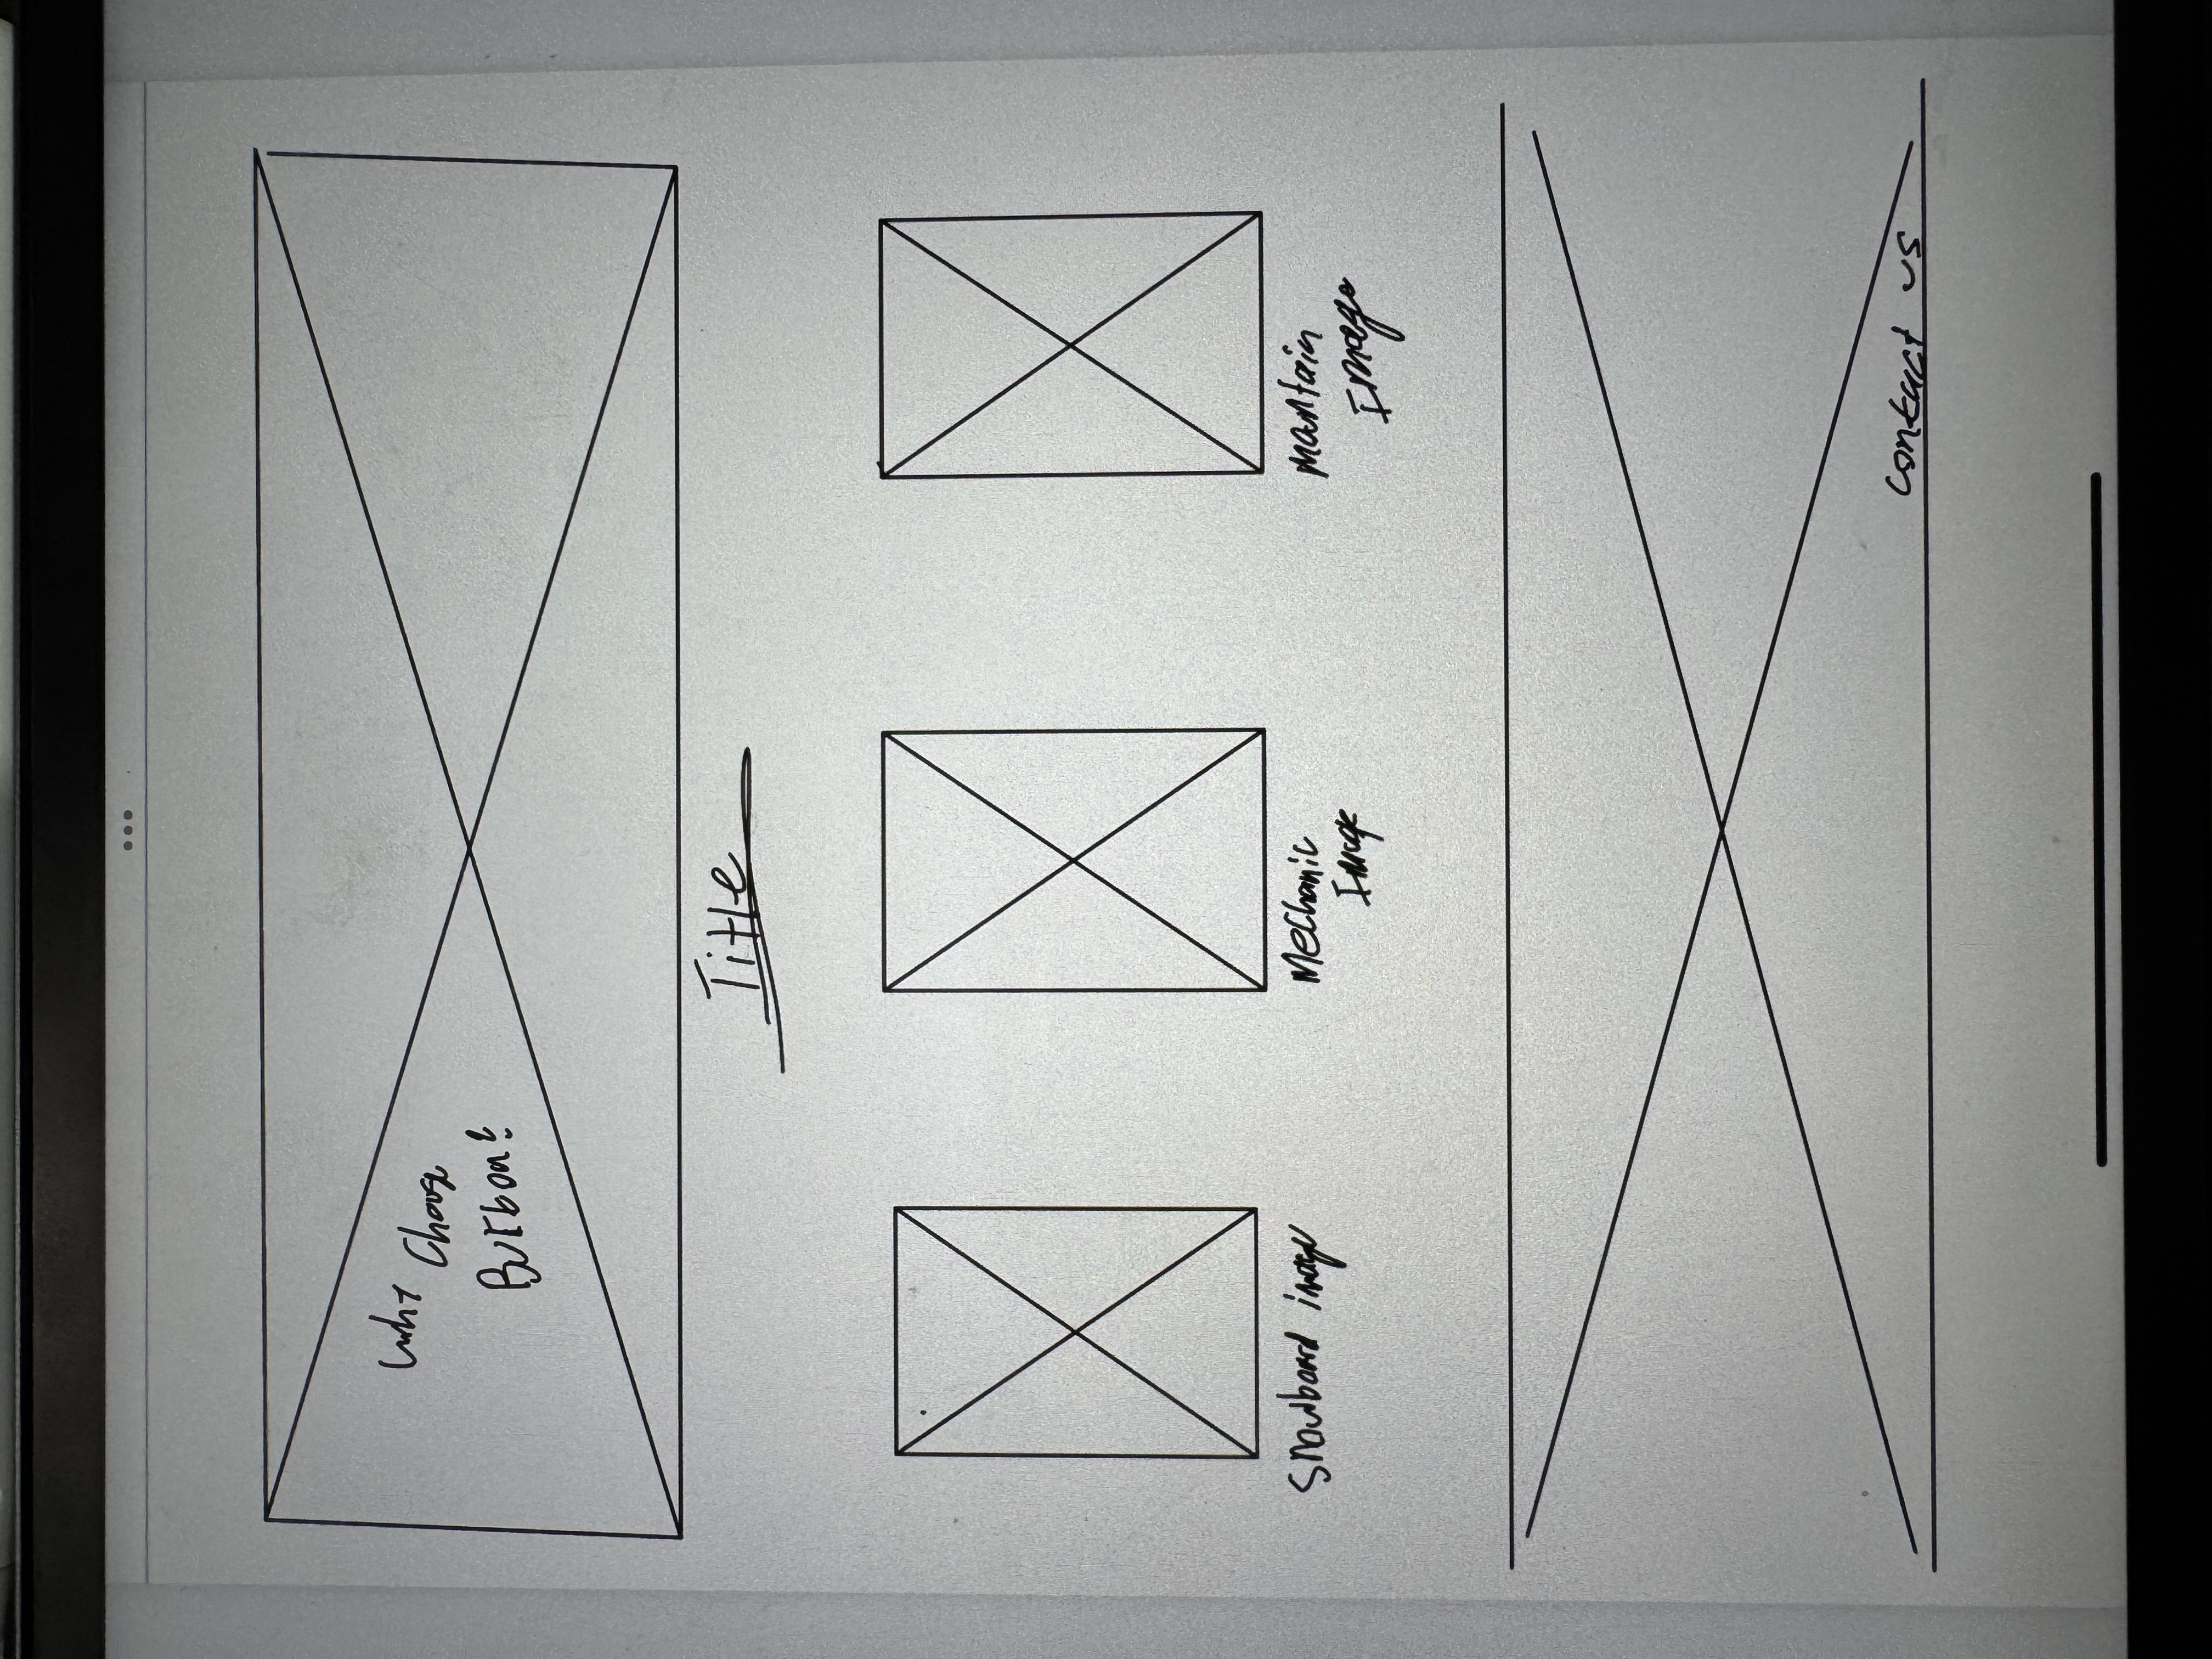 Why
Choose
Burton?
Title
Snowboard image
Mechanic
Image
Mountain
Image
contact us